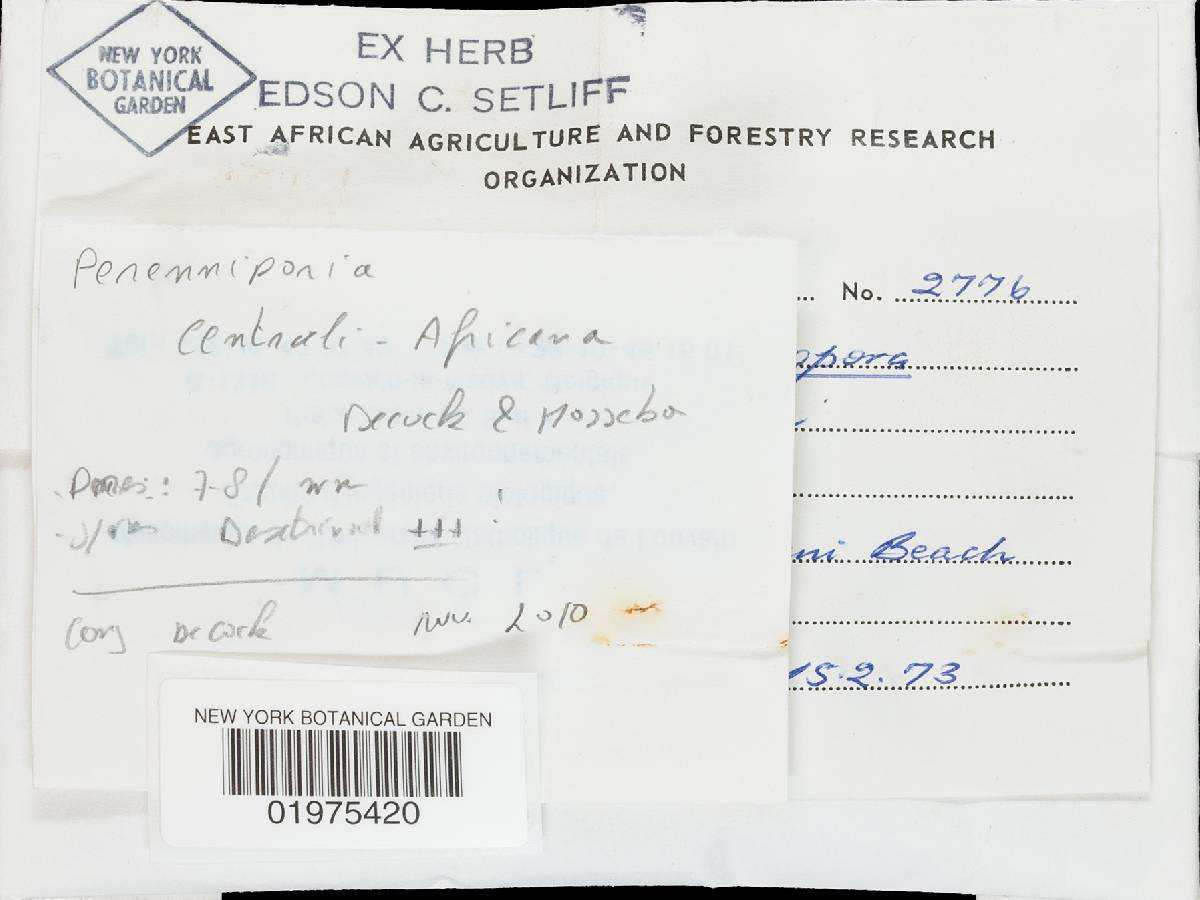 NEW YORK
BOTANICAL
GARDEN
EX HERB
EDSON C. SETLIFF
EAST AFRICAN AGRICULTURE AND FORESTRY RESEARCH
ORGANIZATION
No. 2776
opora
ni Beach
15.2.73
Perenniporia
Centrali - Africana
Decock & Mosseba
Pores: 7-8/mm
Dextrinoid +++
Conf Decock nov. 2010
NEW YORK BOTANICAL GARDEN
01975420